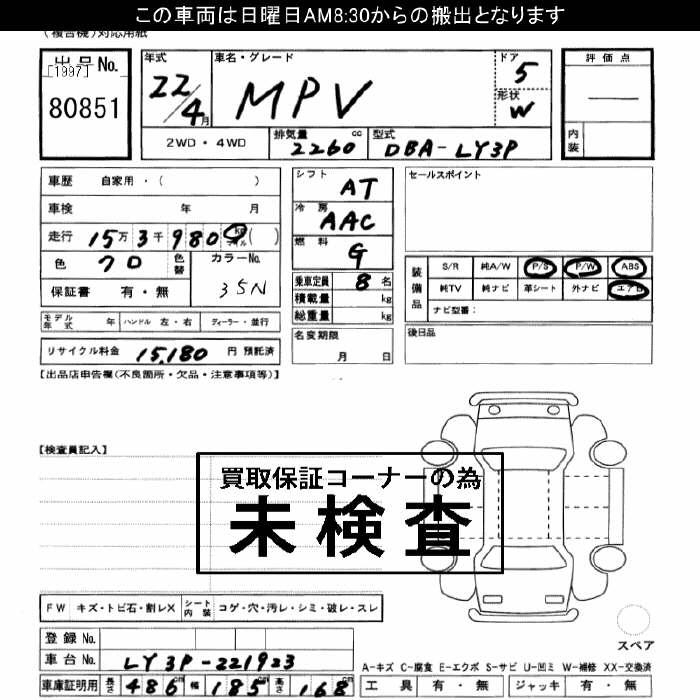 この車両は日曜日AM8:30からの搬出となります
(複合機)対応用紙
出品No.
[1997]
80851
年式
22/4月
車名・グレード
MPV
ドア
5
形状
W
評価点
—
内装
2WD・4WD
排気量
2260 cc
型式
DBA-LY3P
車歴 自家用・( )
車検 年 月
走行 15万3千980 km マイル ( )
色 クロ 色替
カラーNo.
35N
保証書 有・無
シフト
AT
冷房
AAC
燃料
G
乗車定員 8名
積載量 kg
総重量 kg
セールスポイント
装備品
S/R 純A/W P/S P/W ABS
純TV 純ナビ 革シート 外ナビ エアB
ナビ型番:
モデル年式 年 ハンドル 左・右 ディーラー・並行
名変期限
月 日
後日品
リサイクル料金 15,180 円 預託済
【出品店申告欄(不良箇所・欠品・注意事項等)】
【検査員記入】
買取保証コーナーの為
未検査
FW キズ・トビ石・割レX シート内装 コゲ・穴・汚レ・シミ・破レ・スレ
スペア
登録No.
車台No. LY3P-221923
A-キズ C-腐食 E-エクボ S-サビ U-凹ミ W-補修 XX-交換済
車庫証明用 長さ 486cm 幅 185cm 高さ 168cm
工具 有・無 ジャッキ 有・無